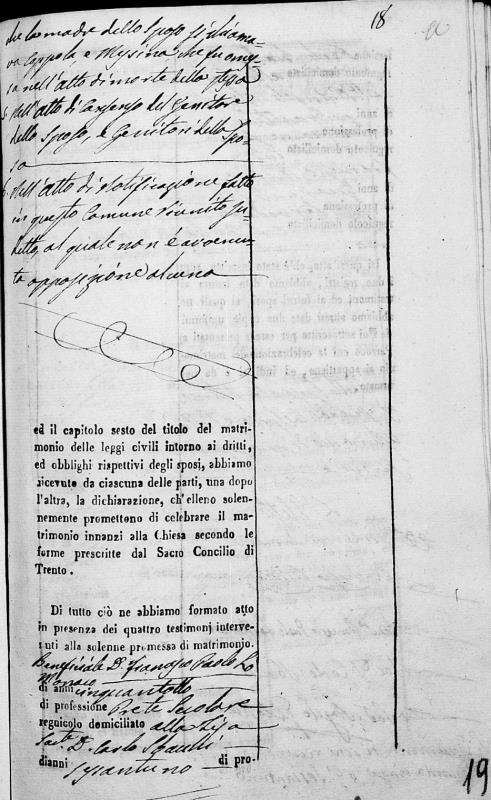 18
che la madre dello Sposo si chiama-
va Coppola, e Messina che fu omes-
sa nell'atto di morte della stessa
5. Nell'atto di Consenso del Genitore
dello Sposo, e Genitori della Spo-
sa
6. Nell'atto di Notificazione fatto
in questo Comune
al quale non è avvenu-
ta opposizione alcuna
ed il capitolo sesto del titolo del matri-
monio delle leggi civili intorno ai dritti,
ed obblighi rispettivi degli sposi, abbiamo
ricevuto da ciascuna delle parti, una dopo
l'altra, la dichiarazione, ch'elleno solen-
nemente promettono di celebrare il ma-
trimonio innanzi alla Chiesa secondo le
forme prescritte dal Sacro Concilio di
Trento.
Di tutto ciò ne abbiamo formato atto
in presenza dei quattro testimonj interve-
nuti alla solenne promessa di matrimonio.
Beneficiale D. Francesco Paolo Lo
Monaco
di anni cinquantotto
di professione Prete Secolare
regnicolo domiciliato
D. Carlo
di anni sessantuno di pro-
19